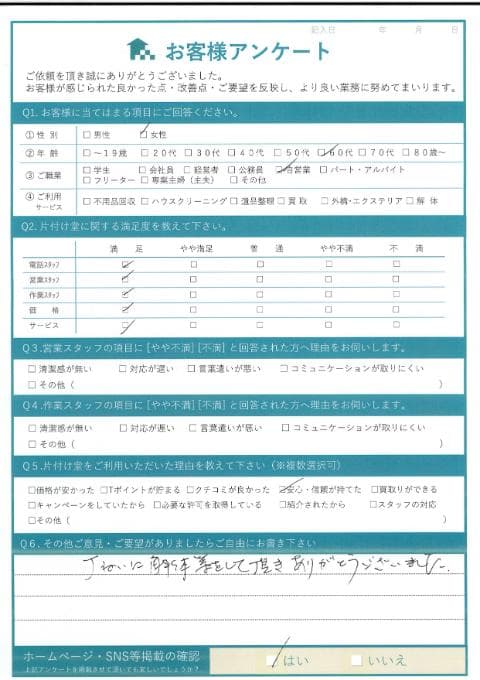 記入日 年 月 日
お客様アンケート
ご依頼を頂き誠にありがとうございました。
お客様が感じられた良かった点・改善点・ご要望を反映し、より良い業務に努めてまいります。
Q1. お客様に当てはまる項目にご回答ください。
① 性 別 □ 男性 ☑ 女性
② 年 齢 □ ～19歳 □ 20代 □ 30代 □ 40代 □ 50代 ☑ 60代 □ 70代 □ 80歳～
③ ご職業 □ 学生 □ 会社員 □ 経営者 □ 公務員 ☑ 自営業 □ パート・アルバイト
□ フリーター □ 専業主婦（主夫） □ その他
④ ご利用サービス □ 不用品回収 □ ハウスクリーニング □ 遺品整理 □ 買 取 □ 外構・エクステリア □ 解 体
Q2. 片付け堂に関する満足度を教えて下さい。
満 足 やや満足 普 通 やや不満 不 満
電話スタッフ ☑ □ □ □ □
営業スタッフ ☑ □ □ □ □
作業スタッフ ☑ □ □ □ □
価 格 ☑ □ □ □ □
サービス ☑ □ □ □ □
Q3.営業スタッフの項目に [やや不満] [不満] と回答された方へ理由をお伺いします。
□ 清潔感が無い □ 対応が遅い □ 言葉遣いが悪い □ コミュニケーションが取りにくい
□ その他（ ）
Q4.作業スタッフの項目に [やや不満] [不満] と回答された方へ理由をお伺いします。
□ 清潔感が無い □ 対応が遅い □ 言葉遣いが悪い □ コミュニケーションが取りにくい
□ その他（ ）
Q5.片付け堂をご利用いただいた理由を教えて下さい（※複数選択可）
□価格が安かった □Tポイントが貯まる □クチコミが良かった ☑安心・信頼が持てた □買取りができる
□キャンペーンをしていたから □必要な許可を取得している □紹介されたから □スタッフの対応
□その他（ ）
Q6. その他ご意見・ご要望がありましたらご自由にお書き下さい
丁ねいに解体等をして頂きありがとうございました。
ホームページ・SNS等掲載の確認 ☑ はい □ いいえ
上記アンケートを掲載させて頂いても宜しいでしょうか？